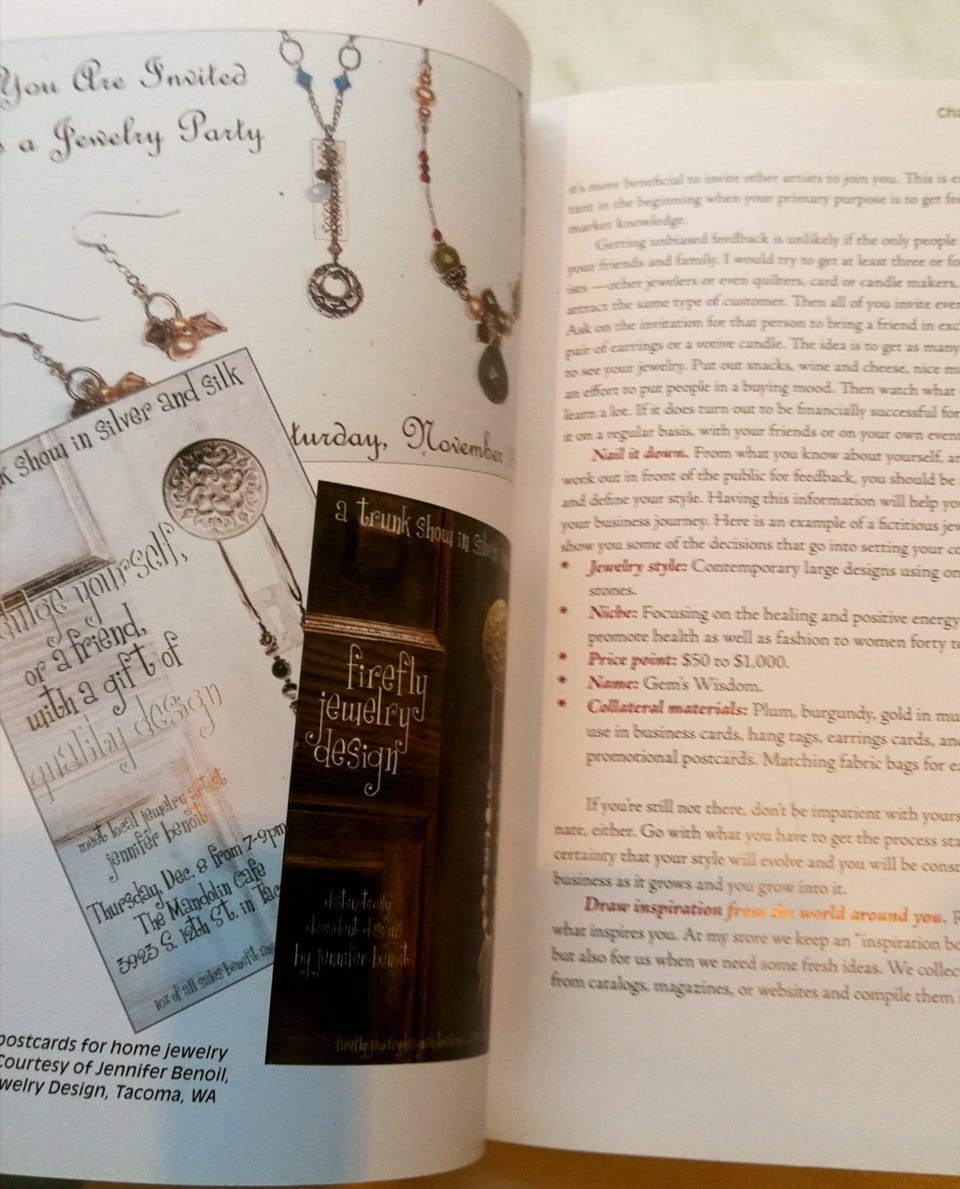 You Are Invited
a Jewelry Party
turday, November
k show in silver and silk
dulge yourself,
or a friend,
with a gift of
quality design
meet local jewelry artist
jennifer benoit
Thursday, Dec. 8 from 7-9pm
The Mandolin Cafe
3923 S. 12th St. in Tac
of all sales benefit
a trunk show in silver
firefly
jewelry
design
distinctively
decadent designs
by jennifer benoit
postcards for home jewelry
Courtesy of Jennifer Benoil,
welry Design, Tacoma, WA
Cha
it's more beneficial to invite other artists to join you. This is e
in the beginning when your primary purpose is to get fe
market knowledge.
Getting unbiased feedback is unlikely if the only people
your friends and family. I would try to get at least three or fo
ists—other jewelers or even quilters, card or candle makers,
attract the same type of customer. Then all of you invite ever
Ask on the invitation for that person to bring a friend in exc
pair of earrings or a votive candle. The idea is to get as many
to see your jewelry. Put out snacks, wine and cheese, nice mu
an effort to put people in a buying mood. Then watch what
learn a lot. If it does turn out to be financially successful for
it on a regular basis, with your friends or on your own event
Nail it down. From what you know about yourself, an
work out in front of the public for feedback, you should be
and define your style. Having this information will help yo
your business journey. Here is an example of a fictitious jew
show you some of the decisions that go into setting your co
* Jewelry style: Contemporary large designs using on
stones.
* Niche: Focusing on the healing and positive energy
promote health as well as fashion to women forty to
* Price point: $50 to $1,000.
* Name: Gem's Wisdom.
* Collateral materials: Plum, burgundy, gold in mu
use in business cards, hang tags, earrings cards, an
promotional postcards. Matching fabric bags for ea
If you're still not there, don't be impatient with yours
nate, either. Go with what you have to get the process sta
certainty that your style will evolve and you will be const
business as it grows and you grow into it.
Draw inspiration from the world around you. F
what inspires you. At my store we keep an "inspiration bo
but also for us when we need some fresh ideas. We collec
from catalogs, magazines, or websites and compile them i